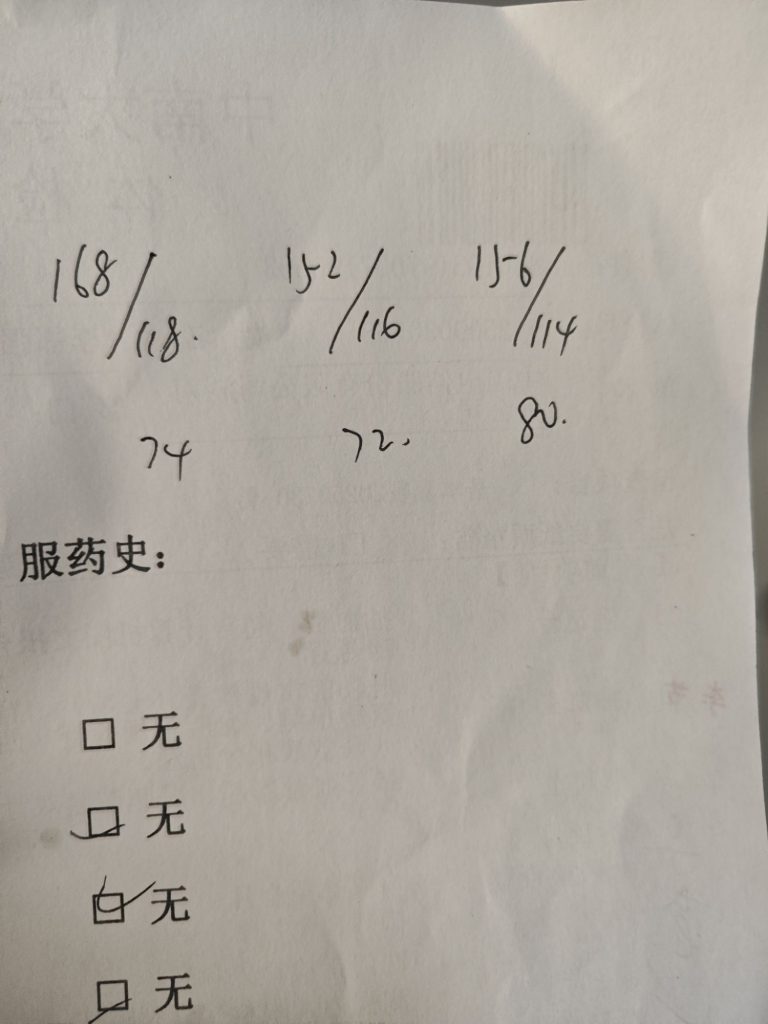 168/118. 152/116 156/114
74 72. 80.
服药史：
□ 无
□ 无
□ 无
□ 无